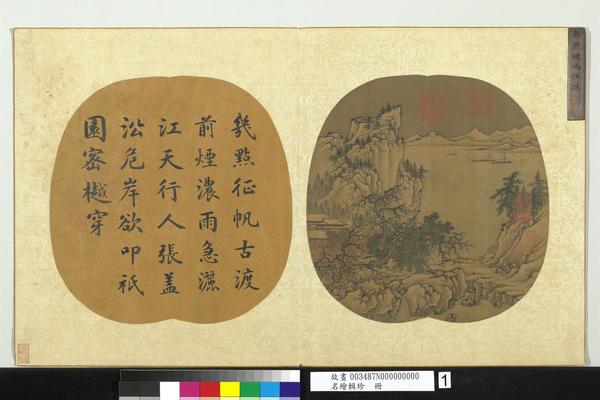 幾點征帆古渡
前煙濃雨急灑
江天行人張盖
沿危岸欲叩祇
園密樾穿
故畫 003487N000000000
名繪輯珍 冊
1